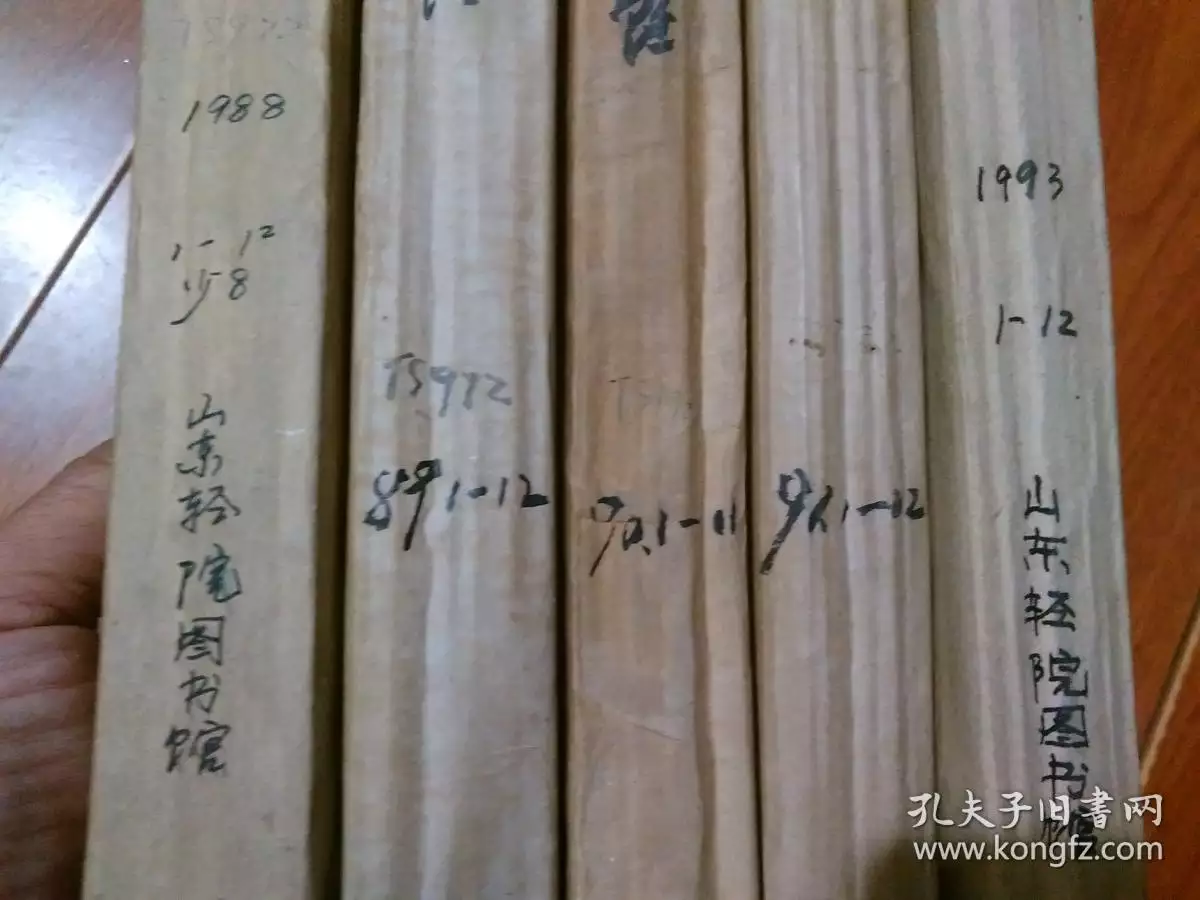 TS972
1988
1-12
少8
山东轻院图书馆
TS972
89 1-12
90.1-11
91.1-12
1993
1-12
山东轻院图书馆
孔夫子旧書网
www.kongfz.com